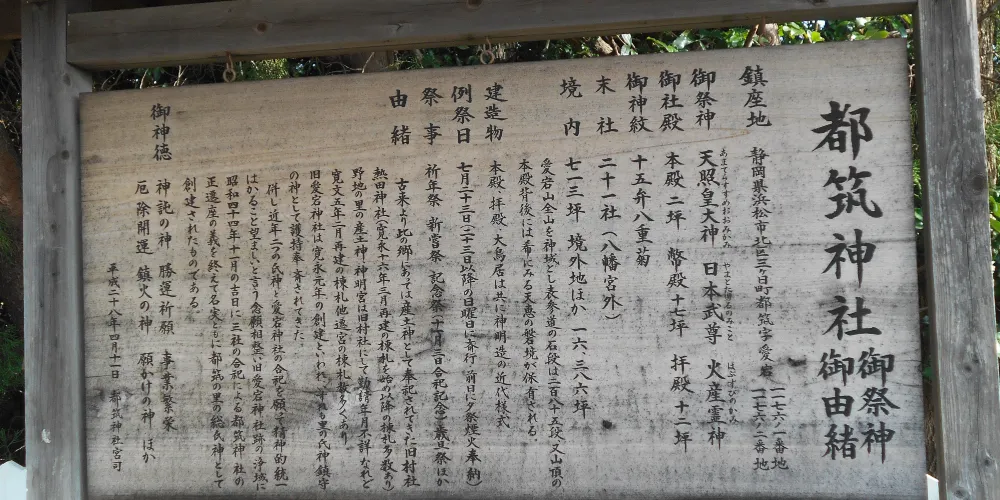 都筑神社 御祭神 御由緒
鎮座地 静岡県浜松市北区三ヶ日町都筑字愛宕 一一七六ノ一番地 一一七六ノ二番地
御祭神 天照皇大神 日本武尊 火産霊神
あまてらすすめおおみかみ やまとたけるのみこと ほぶすびのかみ
御社殿 本殿 二坪 幣殿 十七坪 拝殿 十二坪
御神紋 十五弁八重菊
末社 二十一社(八幡宮外)
境内 七一三坪 境外地ほか 一六、三八六坪
愛宕山全山を神域とし表参道の石段は二百八十五段、又山頂の
本殿背後には希にみる天恵の磐境が保有される。
建造物 本殿、拝殿、大鳥居は共に神明造の近代様式
例祭日 七月二十三日(二十三日以降の日曜日に斎行 前日に夕祭煙火奉納)
祭事 祈年祭 新嘗祭 記念祭(十一月三日合祀記念)歳旦祭ほか
由緒 古来より此の郷にあっては産土神として奉祀されてきた旧村社
熱田神社(寛永十六年三月再建の棟札を始め以降の棟札多数あり)
野地の里の産土神・神明宮は旧村社にて勧請年月不詳なれど
寛文五年二月再建の棟札他遷宮の棟札数多くあり
旧愛宕神社は寛永元年の創建といわれ、それぞれの里の氏神鎮守
の神として護持奉斎されてきた。
併し近年二つの氏神と愛宕神社の合祀を願って精神的統一
はかること望ましいと言う念願相整い旧愛宕神社跡の浄域に
昭和四十四年十一月の吉日に三社の合祀による都筑神社の
正遷座の義を終えて名実ともに都筑の里の総氏神として
創建されたものである。
御神徳 神託の神 勝運祈願 事業繁栄
厄除開運 鎮火の神 願かけの神 ほか
平成二十八年四月十一日 都筑神社宮司